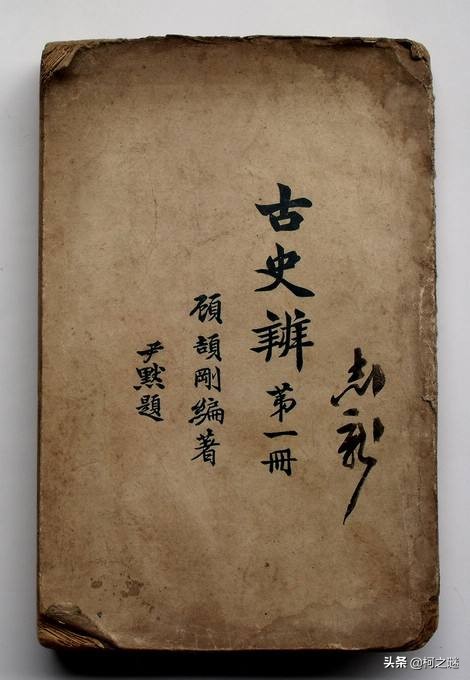 古史辨 第一冊
顧頡剛編著
尹默題
头条 @柯之谜